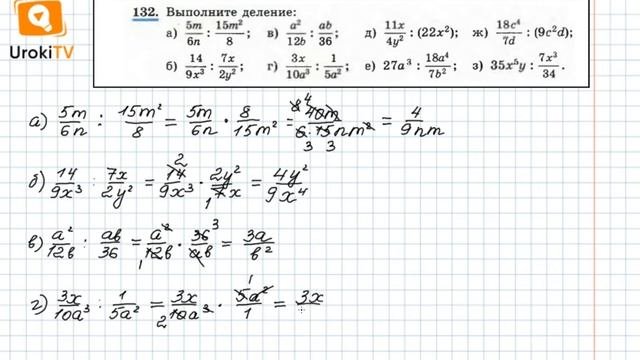 UrokiTV
132. Выполните деление:
а) 5m/6n : 15m²/8; в) a²/12b : ab/36; д) 11x/4y² : (22x²); ж) 18c⁴/7d : (9c²d);
б) 14/9x³ : 7x/2y²; г) 3x/10a³ : 1/5a²; е) 27a³ : 18a⁴/7b²; з) 35x⁵y : 7x³/34.
а) 5m/6n : 15m²/8 = 5m/6n · 8/15m² = = 4/9nm
б) 14/9x³ : 7x/2y² = 14/9x³ · 2y²/7x = 4y²/9x⁴
в) a²/12b : ab/36 = a²/12b · 36/ab = 3a/b²
г) 3x/10a³ : 1/5a² = 3x/10a³ · 5a²/1 = 3x